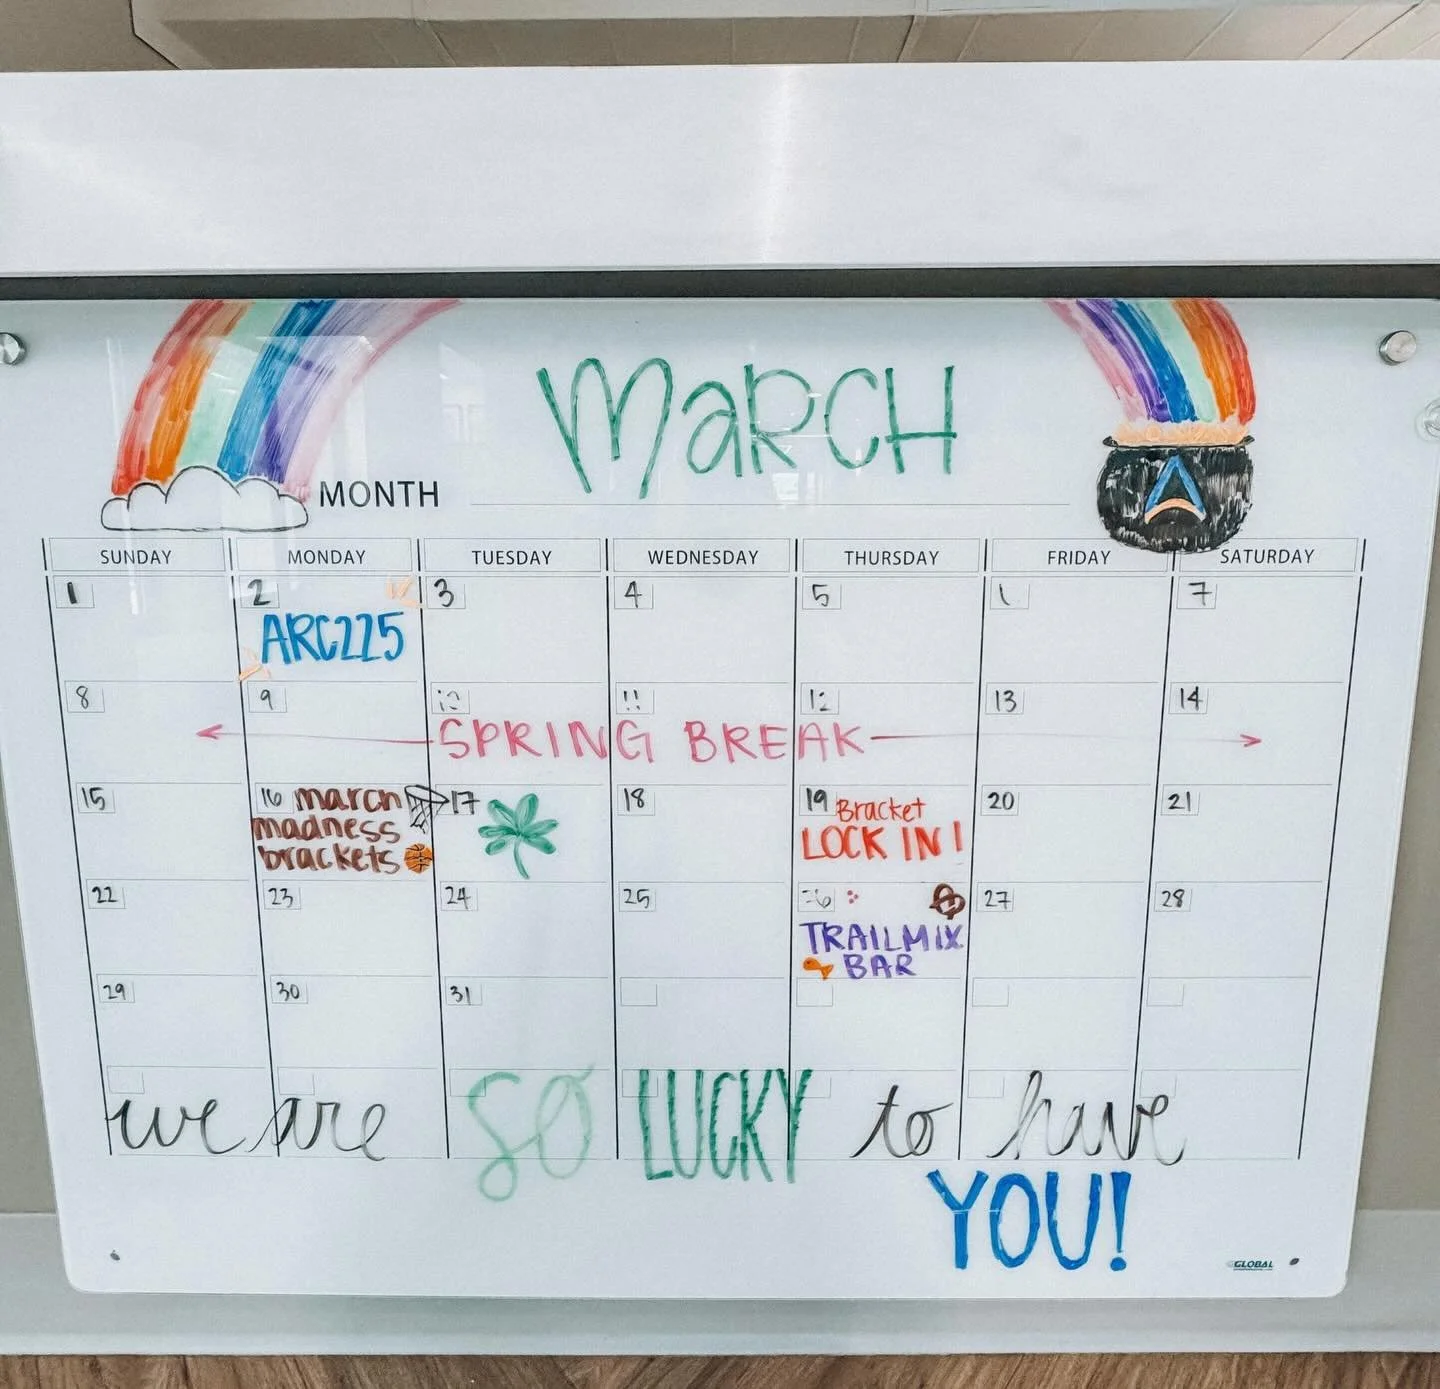 MaRCH
MONTH
SUNDAY MONDAY TUESDAY WEDNESDAY THURSDAY FRIDAY SATURDAY
1 2 3 4 5 7
ARC225
8 9 11 12 13 14
SPRING BREAK
15 16 march madness brackets 17 18 19 Bracket LOCK IN! 20 21
22 23 24 25 27 28
TRAILMIX
BAR
29 30 31
we are SO LUCKY to have
YOU!
GLOBAL